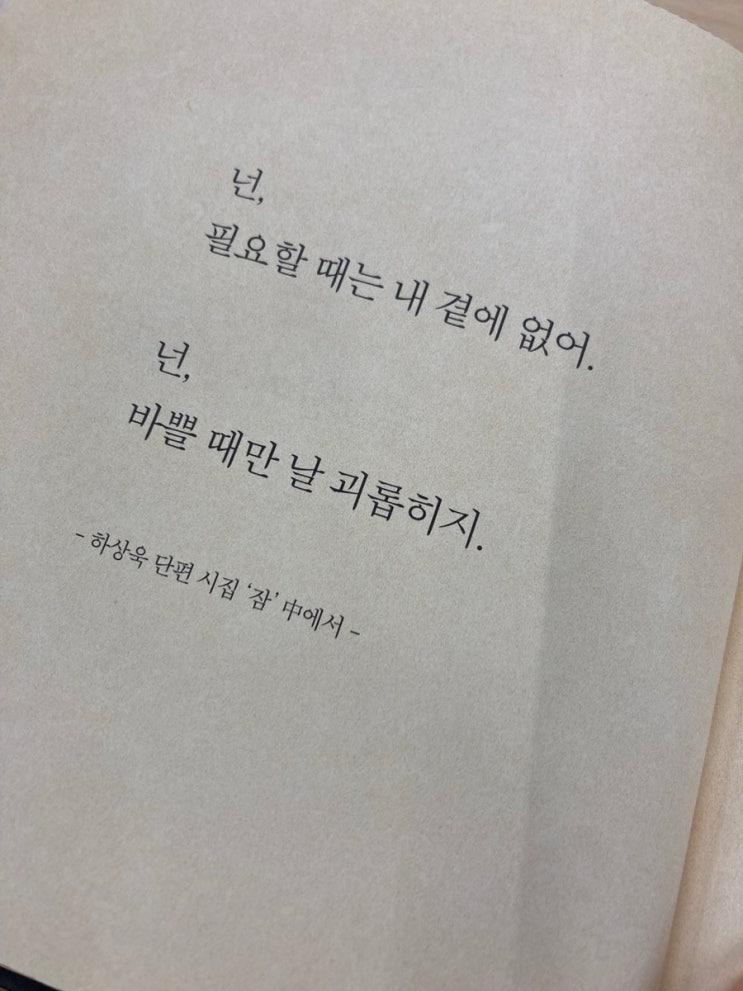 넌,
필요할 때는 내 곁에 없어.
넌,
바쁠 때만 날 괴롭히지.
- 하상욱 단편 시집 ‘잠’ 中에서 -